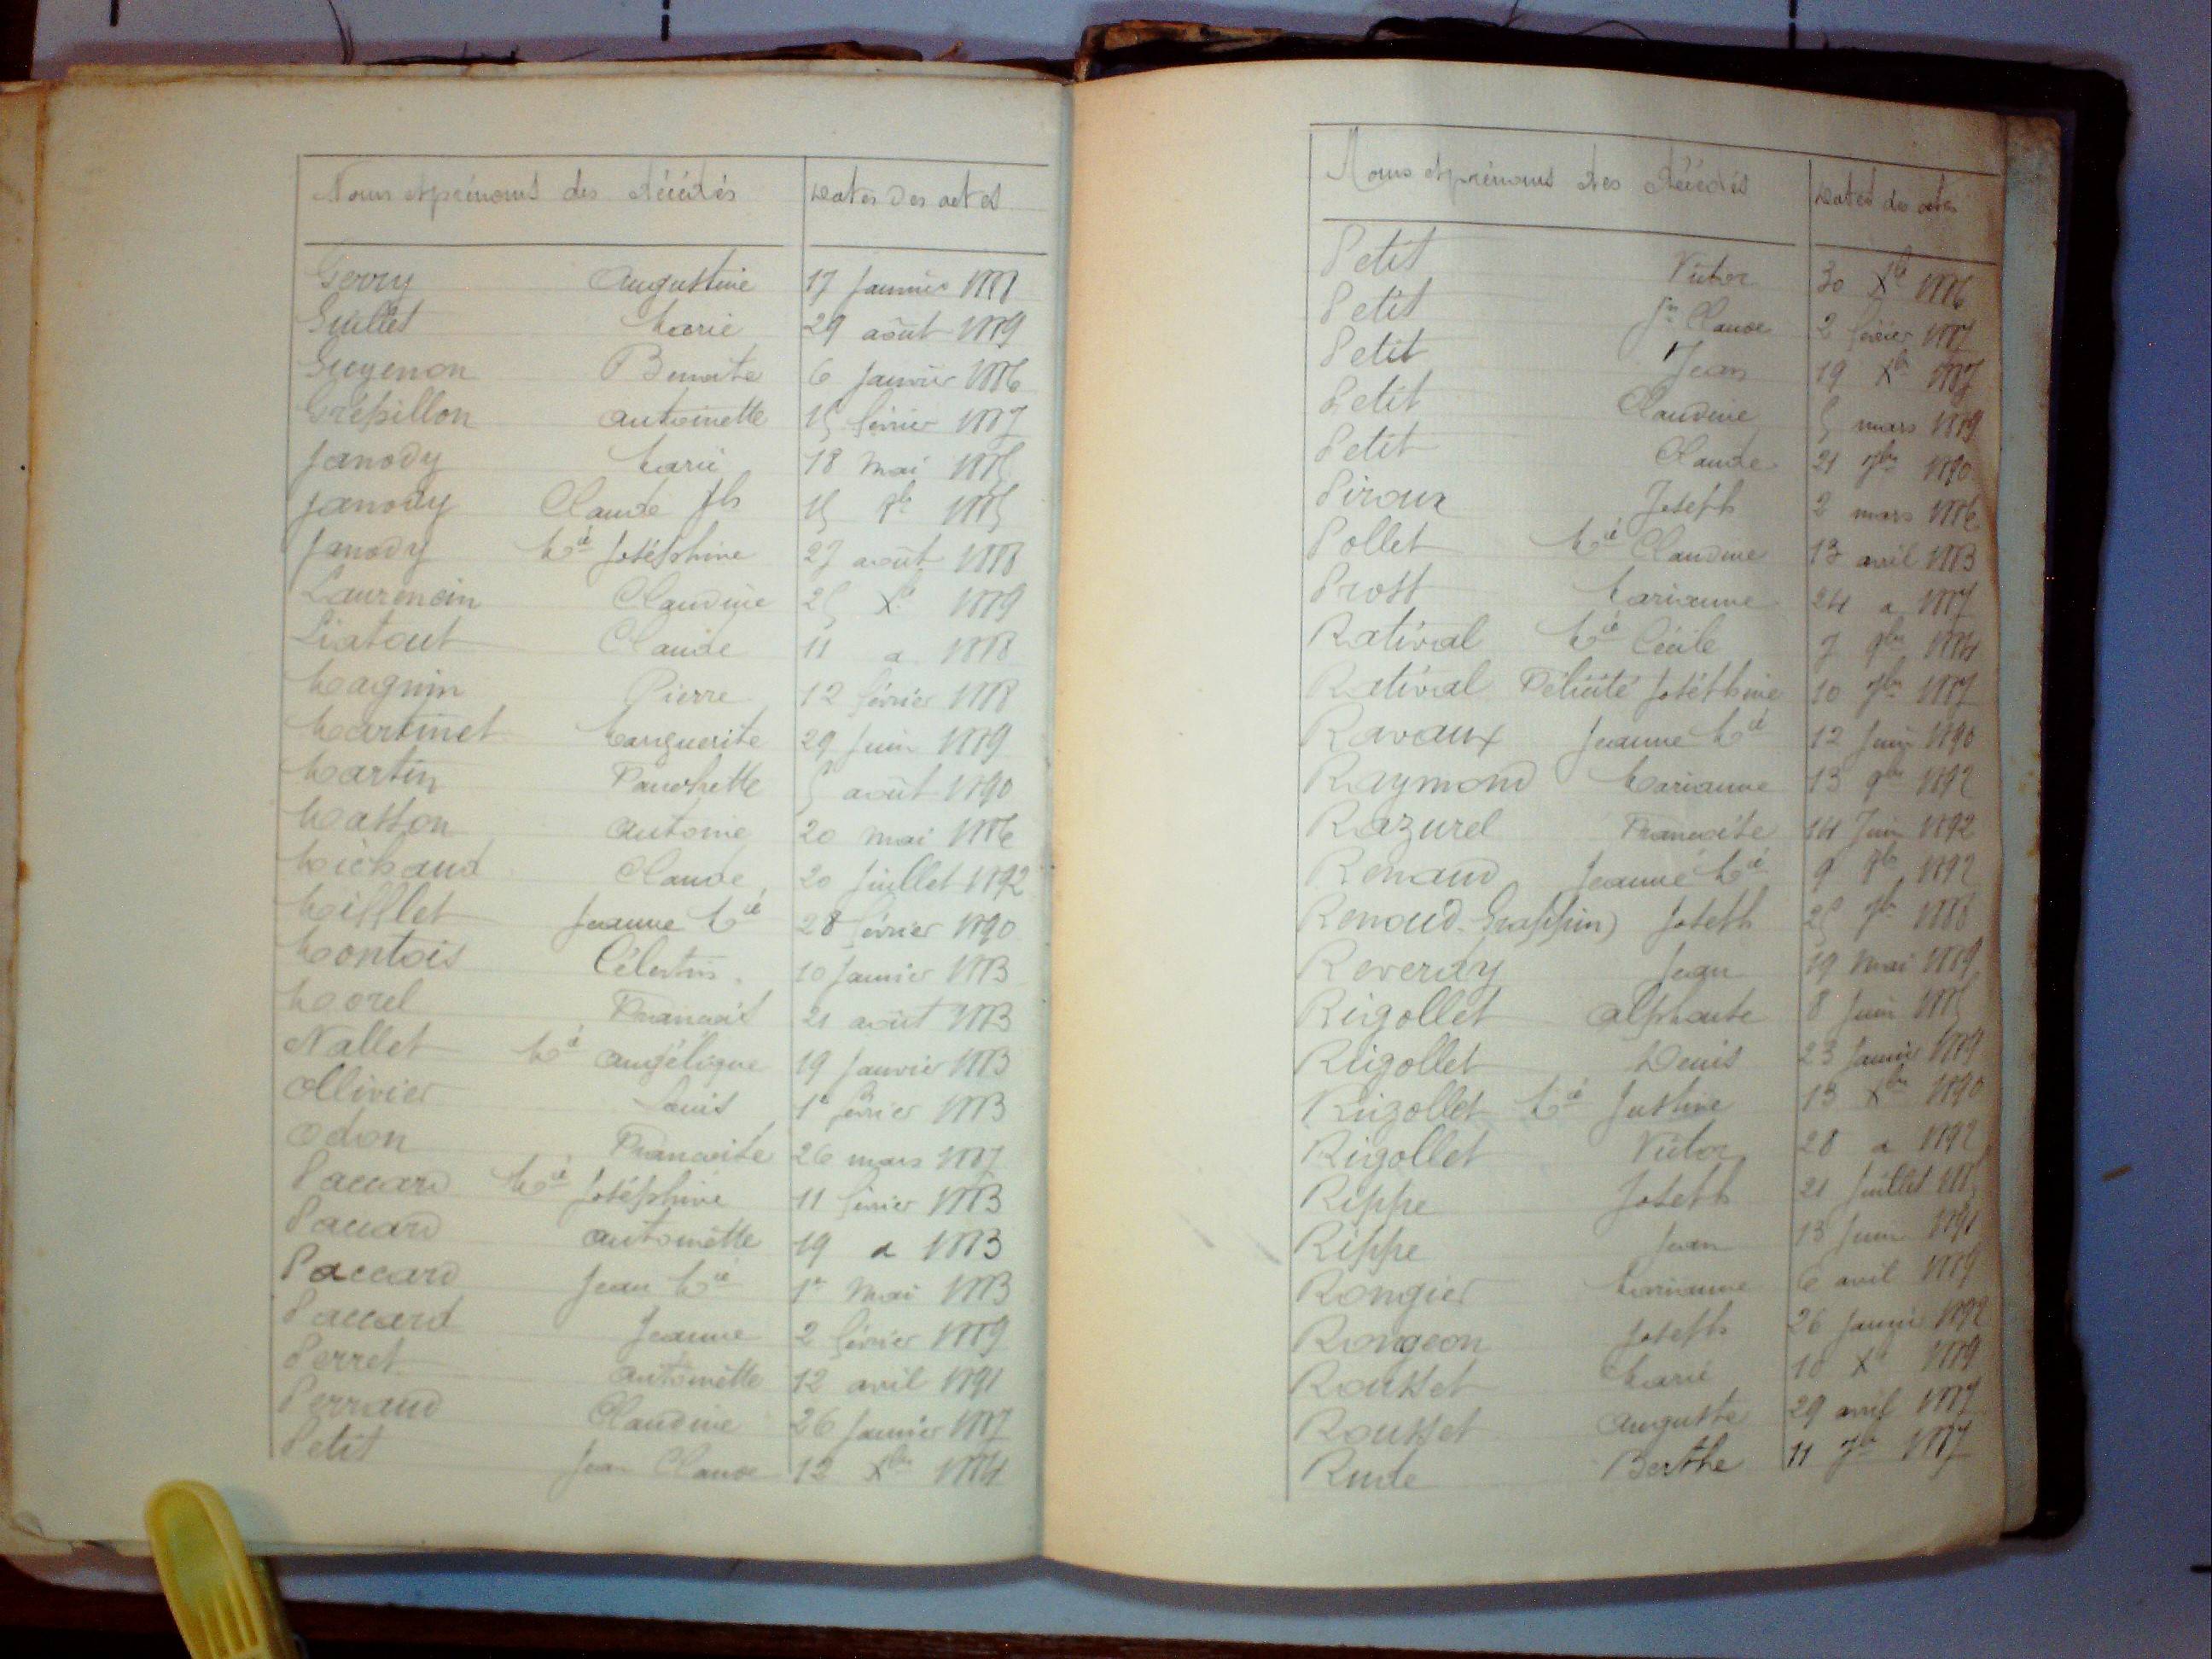 Noms et prénoms des décédés Dates des actes
Gerry Augustine 17 Janvier 1888
Guillet Marie 29 août 1889
Guyenon Benoite 6 Janvier 1886
Crépillon Antoinette 15 février 1887
Janody Marie 18 Mai 1885
Janody Claude Jh 15 8bre 1885
Janody Mie Joséphine 27 août 1888
Laurencin Claudine 25 Xbre 1889
Liatout Claude 11 a 1888
Magnin Pierre 12 février 1888
Martinet Marguerite 29 Juin 1889
Martin Fanchette 5 août 1890
Masson Antoine 20 mai 1886
Michaud Claude 20 Juillet 1892
Mifflet Jeanne Mie 28 février 1890
Montois Célestin 10 Janvier 1883
Morel François 21 août 1883
Nallet Mie Angélique 19 Janvier 1883
Ollivier Louis 1er février 1883
Odon Françoise 26 mars 1887
Paccard Mie Joséphine 11 février 1883
Paccard Antoinette 19 a 1883
Paccard Jean Mie 1er Mai 1883
Paccard Jeanne 2 février 1889
Perret Antoinette 12 avril 1891
Perraud Claudine 26 Janvier 1887
Petit Jean Claude 12 Xbre 1884
Noms et prénoms des décédés Dates des actes
Petit Victor 30 Xbre 1886
Petit Jn Claude 2 février 1887
Petit Jean 19 Xbre 1887
Petit Claudine 5 mars 1889
Petit Claude 21 7bre 1890
Piroux Joseph 2 mars 1886
Pollet Mie Claudine 13 avril 1883
Prost Marianne 24 a 1887
Ratival Mie Cécile 7 9bre 1884
Ratival Félicité Joséphine 10 7bre 1887
Ravaux Jeanne Mie 12 Juin 1890
Raymond Marianne 13 9bre 1892
Razurel Françoise 14 Juin 1892
Renaud Jeanne Mie 9 8bre 1892
Renoud-Grappin) Joseph 25 7bre 1888
Reverdy Jean 19 Mai 1889
Rigollet Alphonse 8 Juin 1885
Rigollet Denis 23 Janvier 1889
Rigollet Mie Justine 13 Xbre 1890
Rigollet Victor 28 a 1892
Rippe Joseph 21 Juillet
Rippe Jean 13 Juin 1891
Rongier Marianne 6 avril 1889
Rongeon Joseph 26 Janvier 1892
Rousset Marie 18 Xbre 1889
Rousset Auguste 29 avril 1887
Rude Berthe 11 7bre 1887